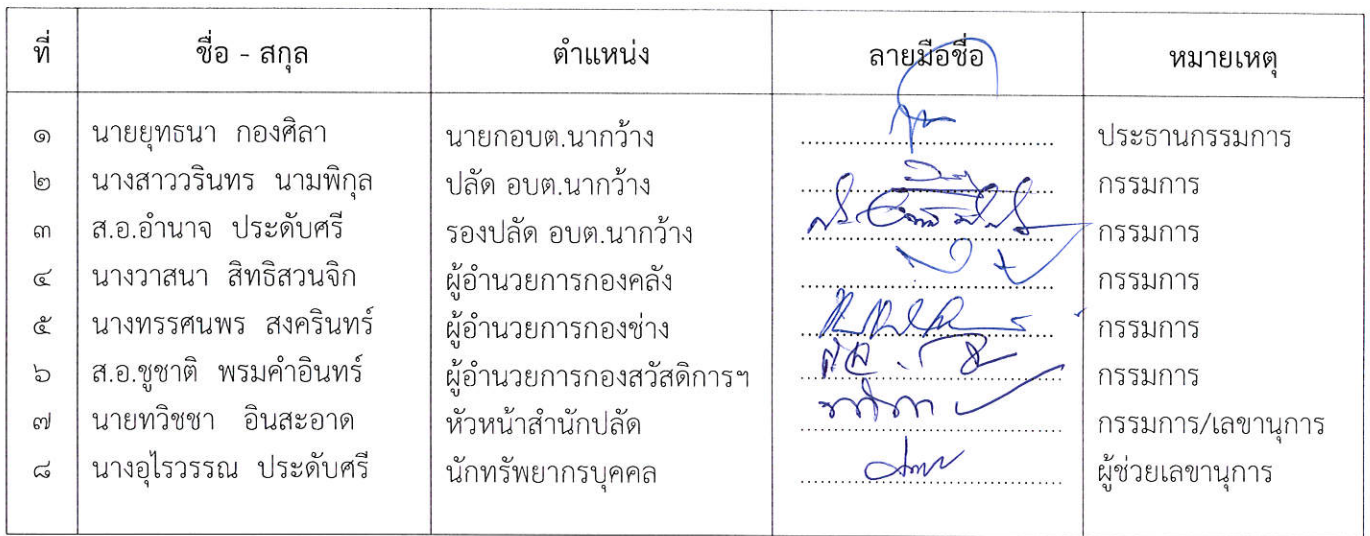 ที่ ชื่อ - สกุล ตำแหน่ง ลายมือชื่อ หมายเหตุ
๑ นายยุทธนา กองศิลา นายกอบต.นากว้าง ประธานกรรมการ
๒ นางสาววรินทร นามพิกุล ปลัด อบต.นากว้าง กรรมการ
๓ ส.อ.อำนาจ ประดับศรี รองปลัด อบต.นากว้าง กรรมการ
๔ นางวาสนา สิทธิสวนจิก ผู้อำนวยการกองคลัง กรรมการ
๕ นางทรรศนพร สงครินทร์ ผู้อำนวยการกองช่าง กรรมการ
๖ ส.อ.ชูชาติ พรมคำอินทร์ ผู้อำนวยการกองสวัสดิการฯ กรรมการ
๗ นายทวิชชา อินสะอาด หัวหน้าสำนักปลัด กรรมการ/เลขานุการ
๘ นางอุไรวรรณ ประดับศรี นักทรัพยากรบุคคล ผู้ช่วยเลขานุการ